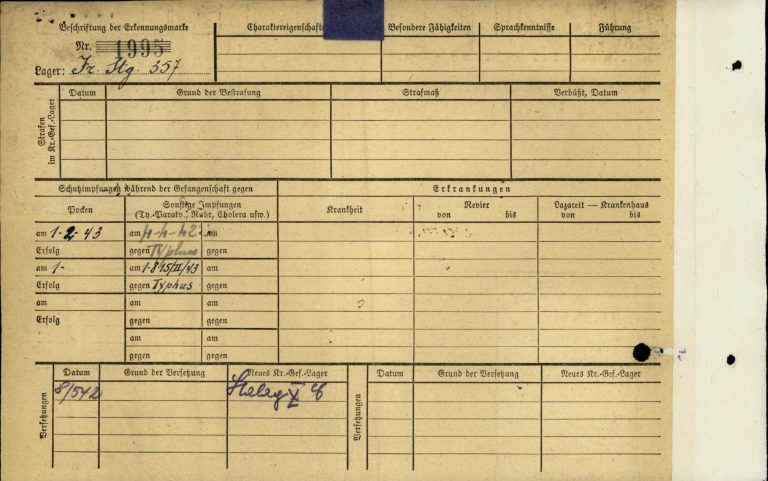 Beschriftung der Erkennungsmarke
Nr. 1995
Lager: Fr. Stg. 357
Charaktereigenschaft Besondere Fähigkeiten Sprachkenntnisse Führung
Strafen im Kr.-Gef.-Lager
Datum Grund der Bestrafung Strafmaß Verbüßt, Datum
Schutzimpfungen während der Gefangenschaft gegen Erkrankungen
Pocken Sonstige Impfungen Krankheit Revier Lazarett — Krankenhaus
(Ty.-Paraty., Ruhr, Cholera usw.) von bis von bis
am 1-2-43 am 4-4-42 am
Erfolg gegen Typhus gegen
am 1- am 1-8-15/II/43 am
Erfolg gegen Typhus gegen
am am am
Erfolg gegen gegen
am am
gegen gegen
Versetzungen
Datum Grund der Versetzung Neues Kr.-Gef.-Lager Datum Grund der Versetzung Neues Kr.-Gef.-Lager
8/542 Stalag X B
Versetzungen